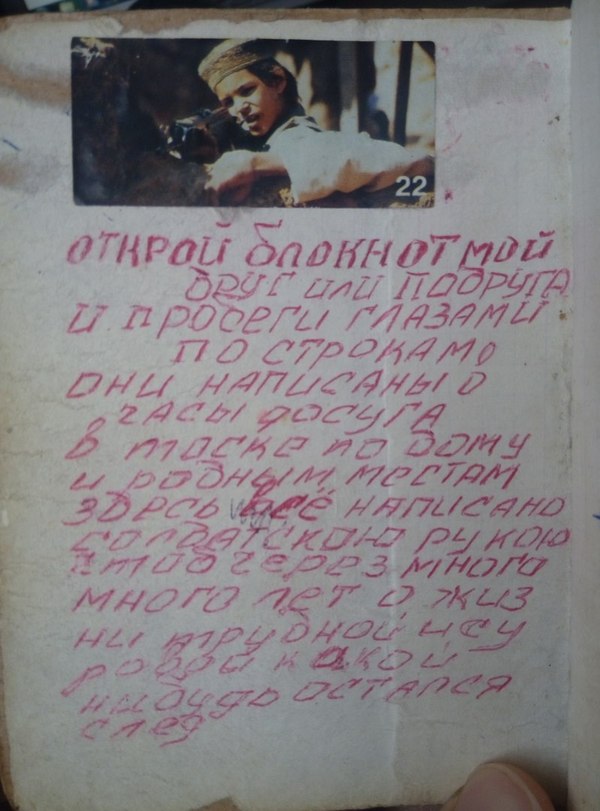 22
ОТКРОЙ БЛОКНОТ МОЙ
ДРУГ ИЛИ ПОДРУГА
И ПРОБЕГИ ГЛАЗАМИ
ПО СТРОКАМ
ОНИ НАПИСАНЫ О
ЧАСЫ ДОСУГА
В ТОСКЕ ПО ДОМУ
И РОДНЫМ МЕСТАМ
ЗДЕСЬ ВСЁ НАПИСАНО
СОЛДАТСКОЮ РУКОЮ
ЧТОБ ЧЕРЕЗ МНОГО
МНОГО ЛЕТ О ЖИЗ
НИ ТРУДНОЙ И СУ
РОВОЙ КАКОЙ
НИБУДЬ ОСТАЛСЯ
СЛЕД